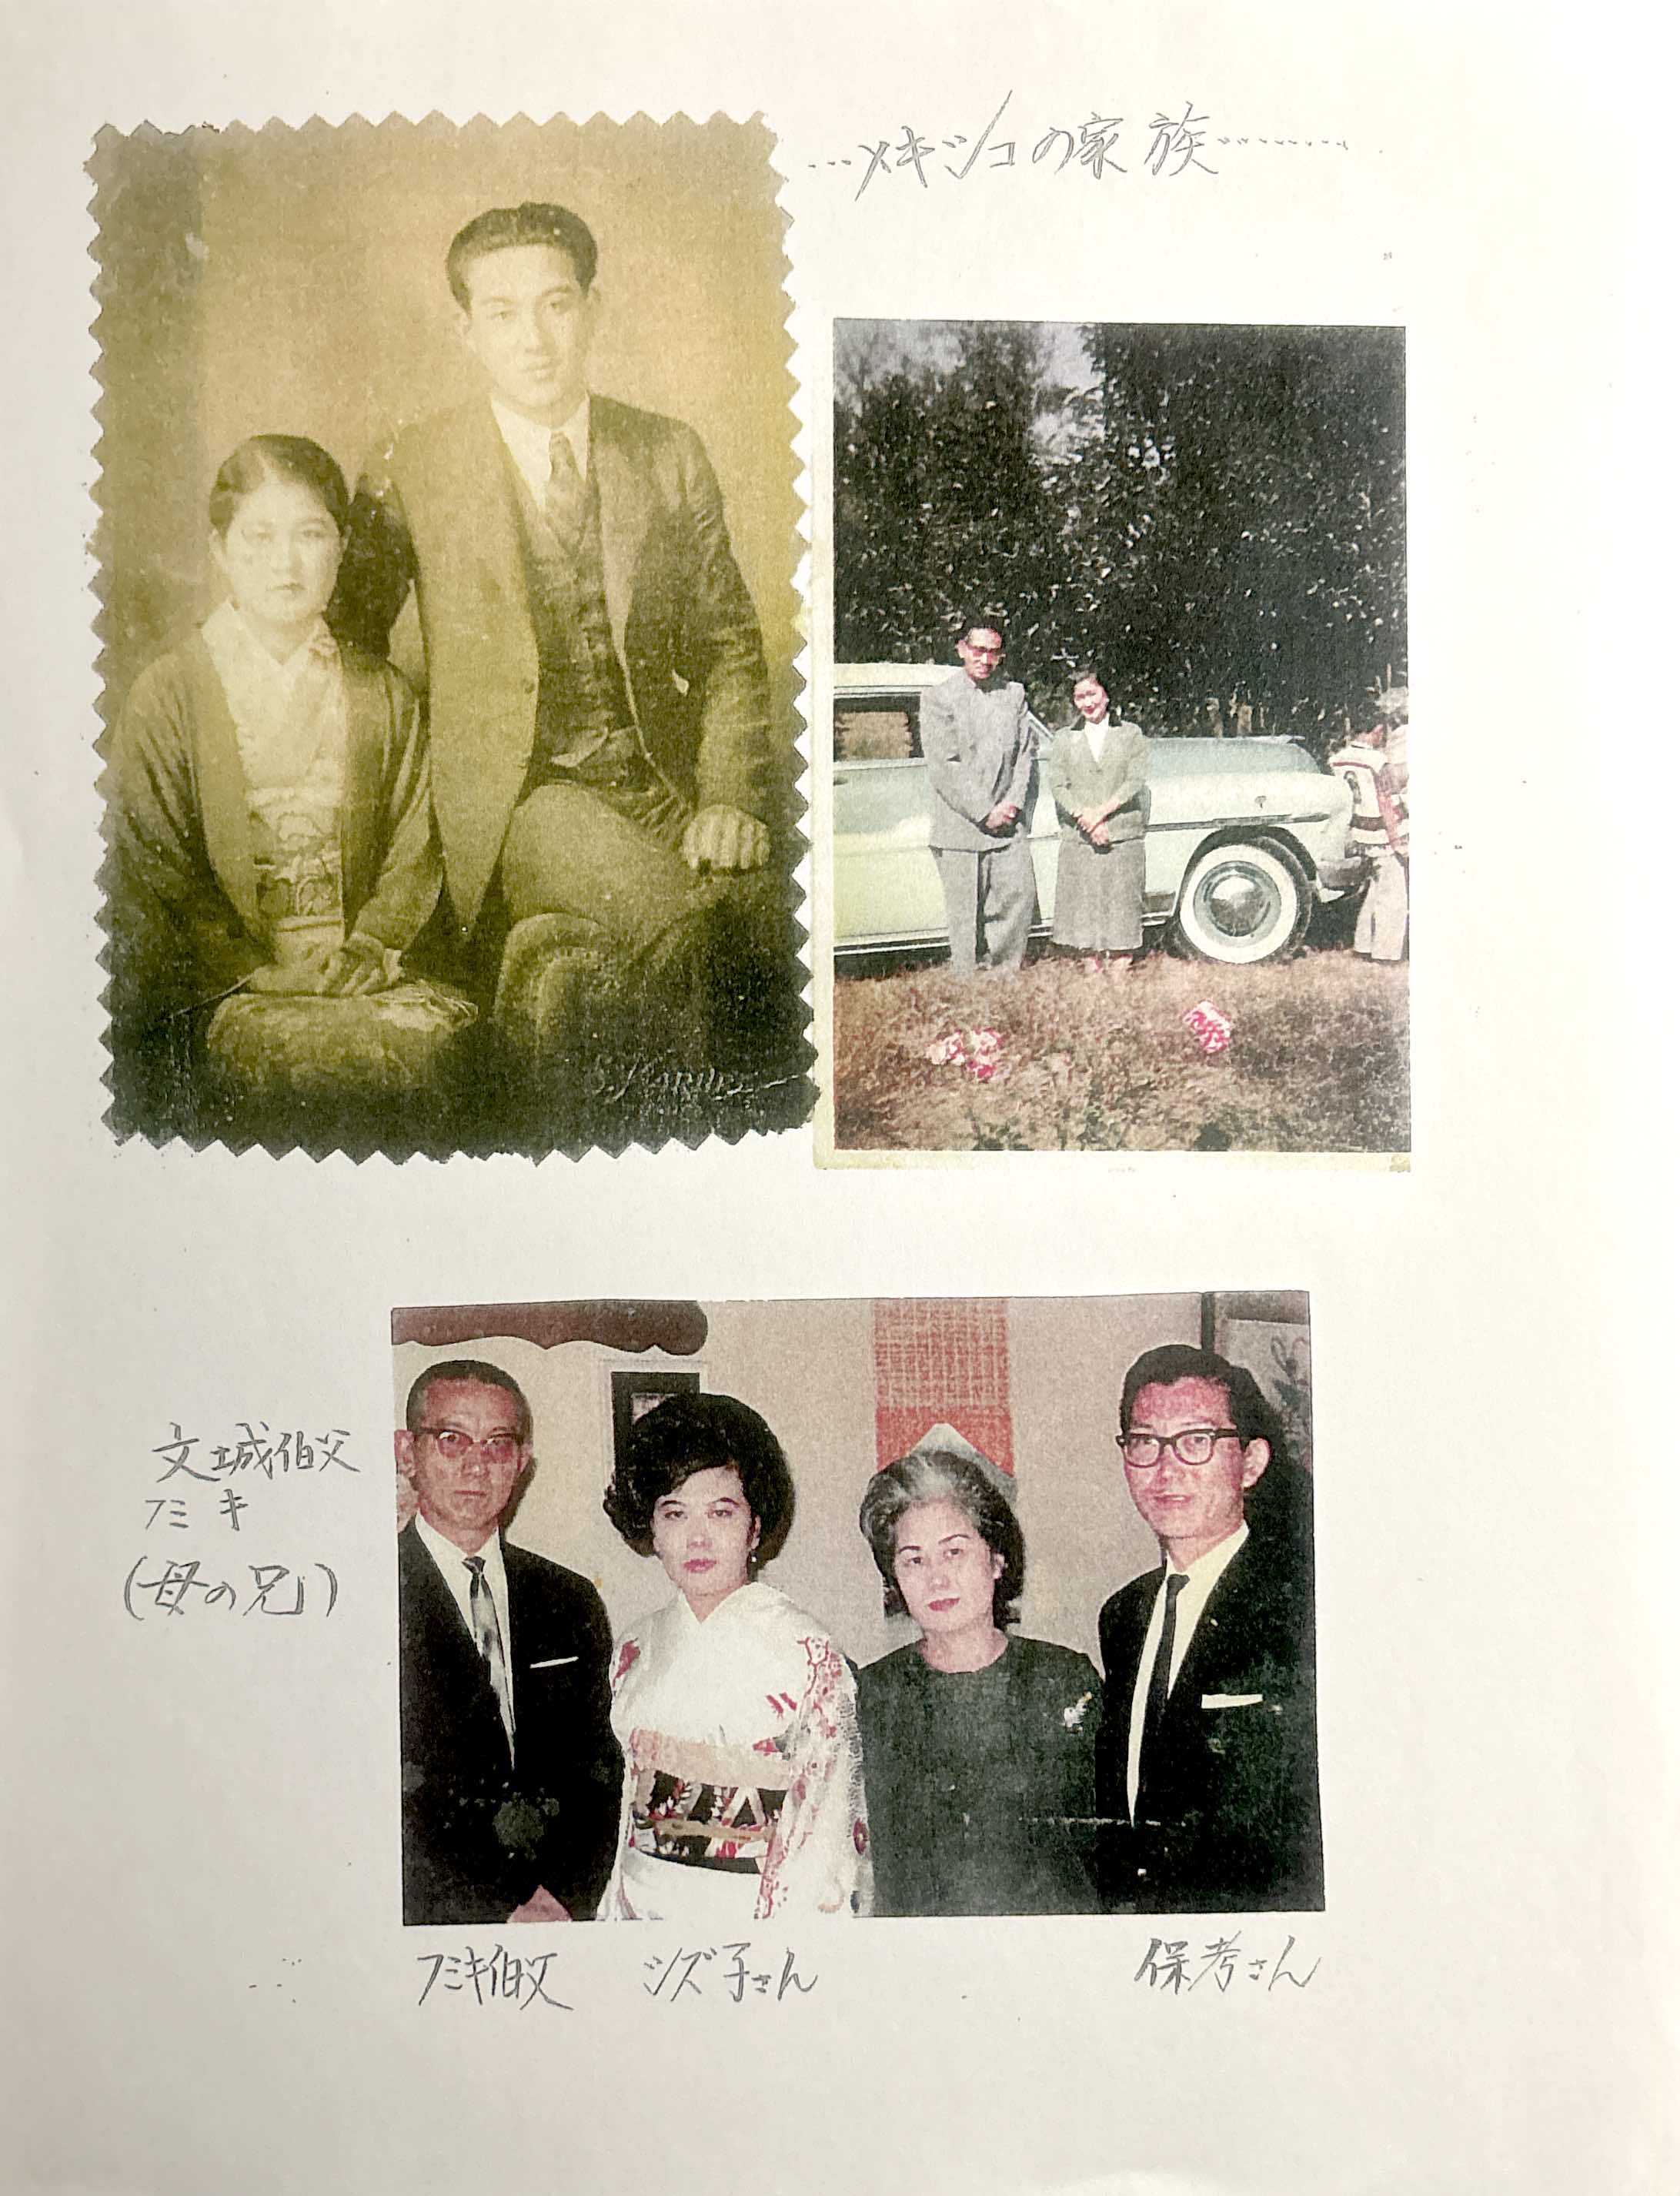 メキシコの家族
文城伯父
フミキ
(母の兄)
フミキ伯父 シズ子さん 保考さん